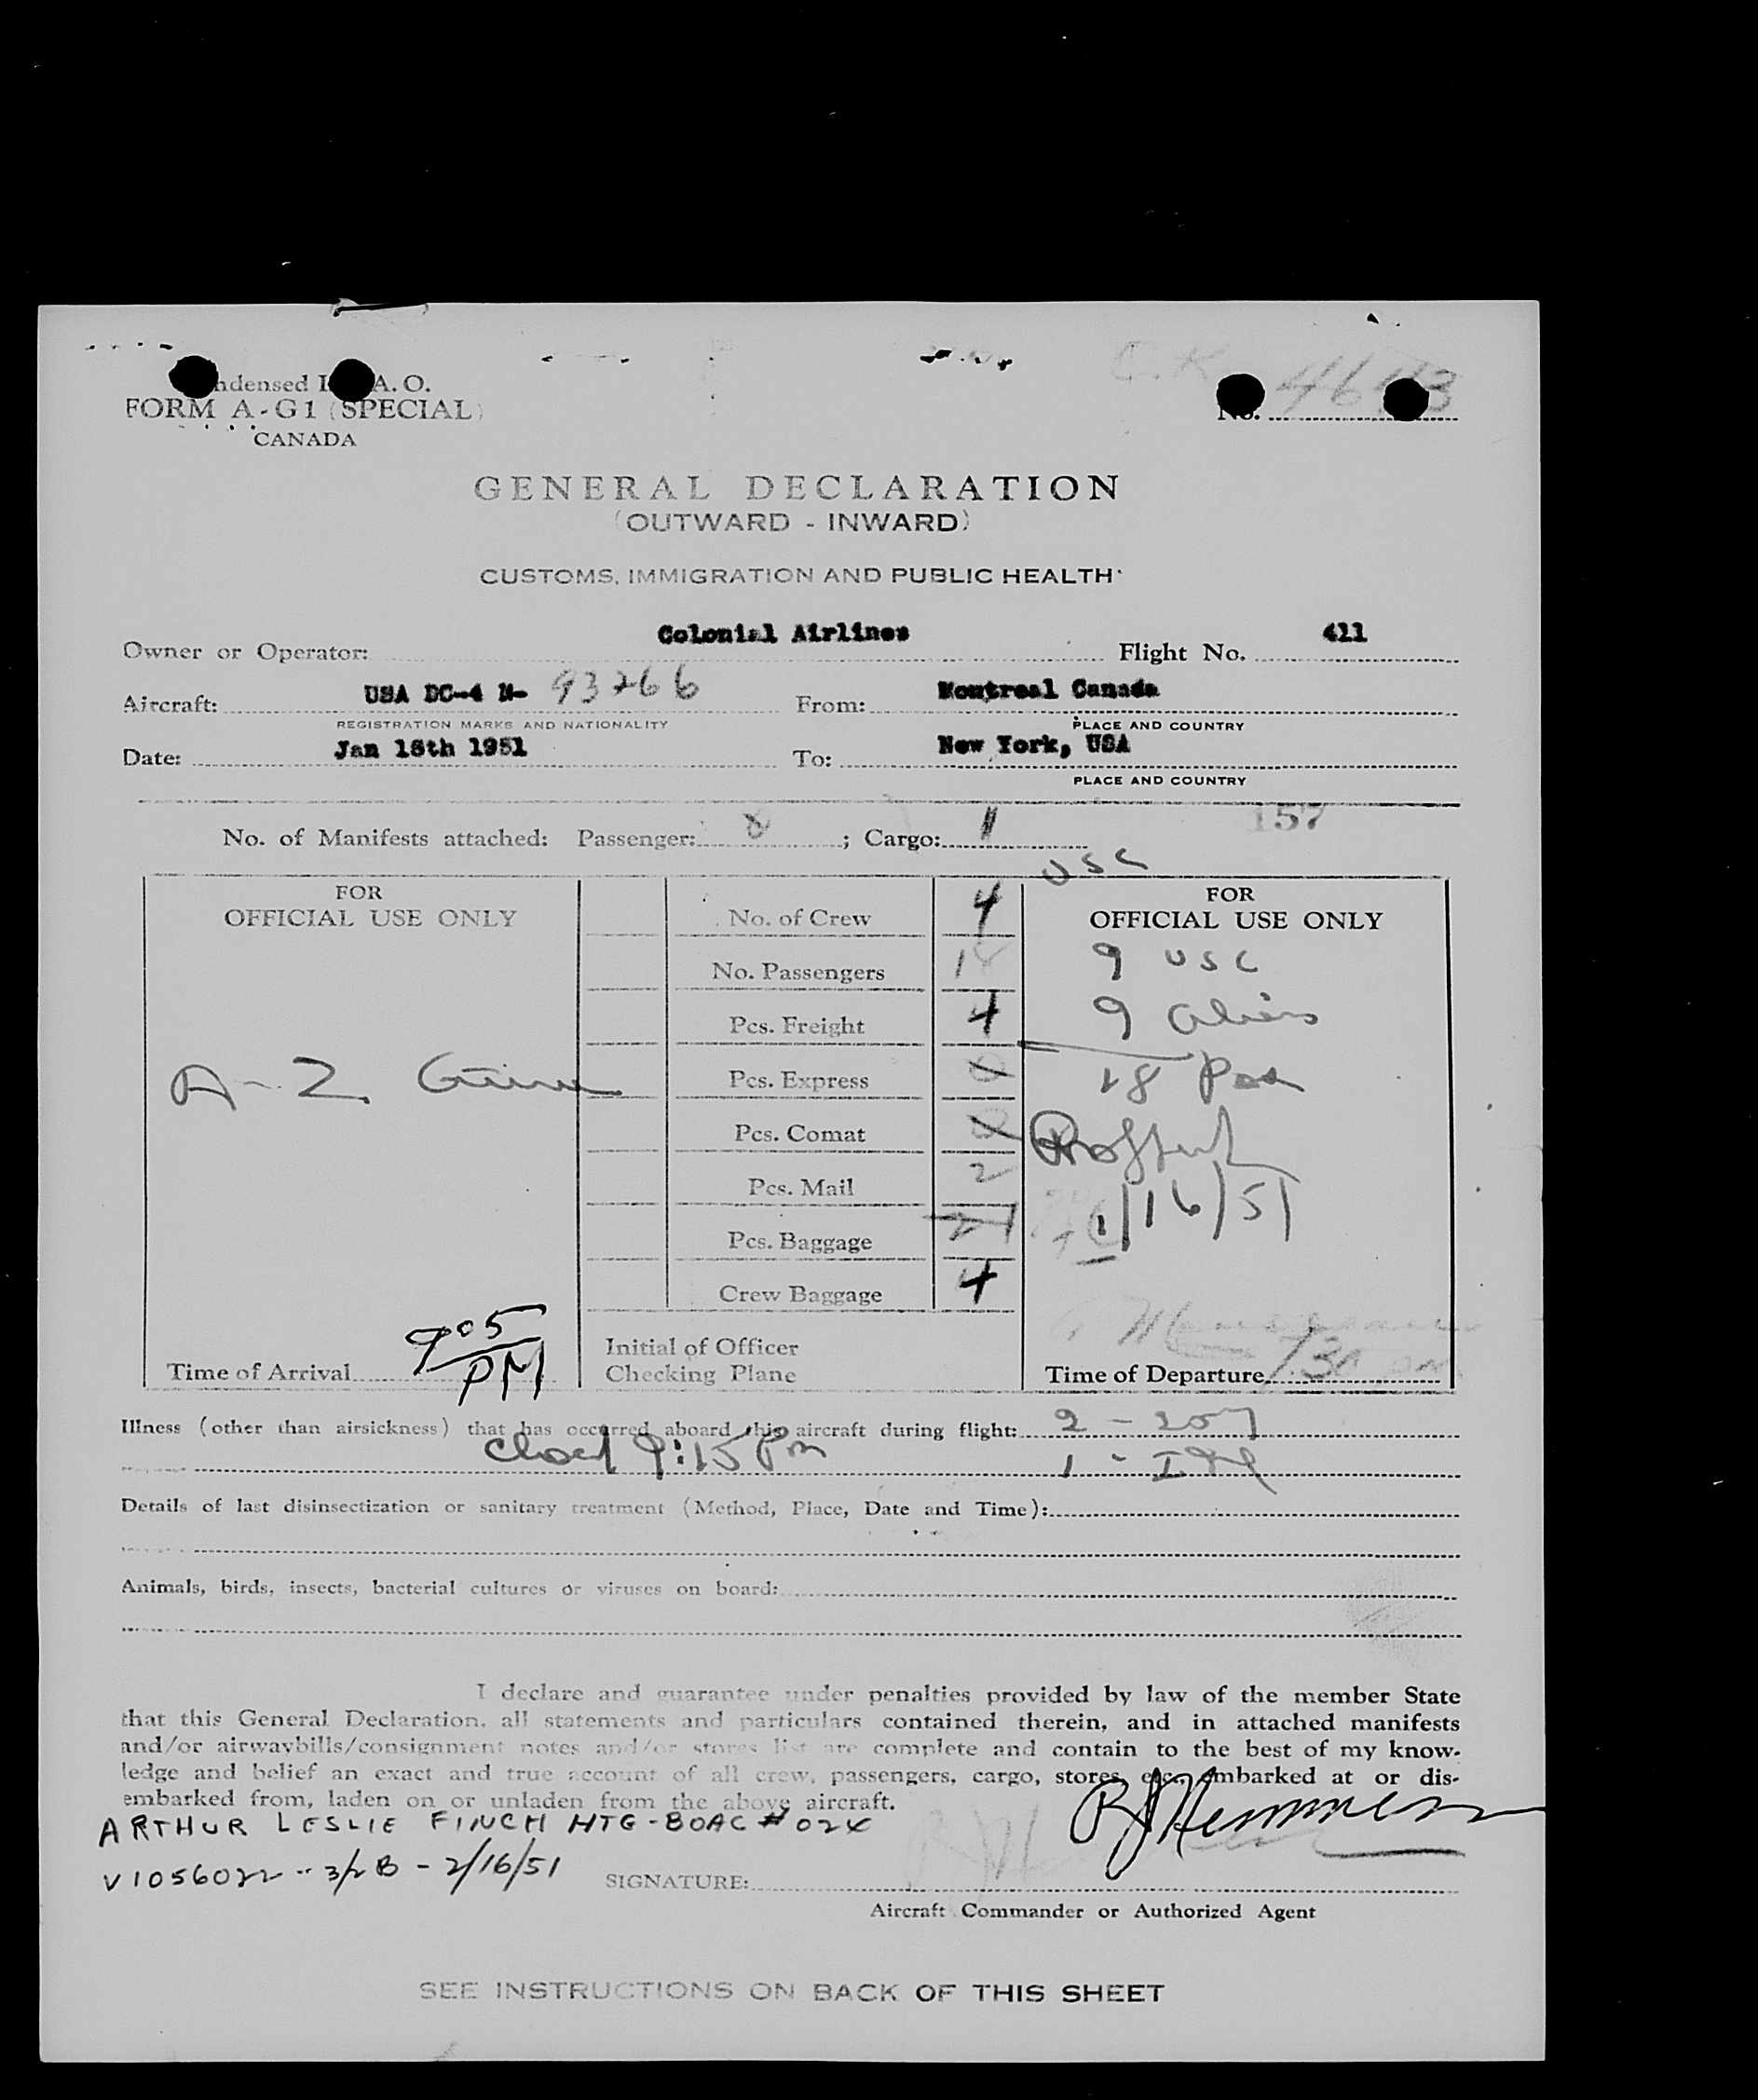 C.K.
ndensed I A. O.
FORM A-G1 (SPECIAL)
CANADA
No.
GENERAL DECLARATION
(OUTWARD - INWARD)
CUSTOMS, IMMIGRATION AND PUBLIC HEALTH
Owner or Operator: Colonial Airlines Flight No. 411
Aircraft: USA DC-4 N- 93266 From: Montreal Canada
REGISTRATION MARKS AND NATIONALITY PLACE AND COUNTRY
Date: Jan 16th 1951 To: New York, USA
PLACE AND COUNTRY
157
No. of Manifests attached: Passenger: ; Cargo:
USC
FOR
OFFICIAL USE ONLY
A-Z
Time of Arrival 905 PM
No. of Crew 4
No. Passengers 18
Pcs. Freight 4
Pcs. Express 0
Pcs. Comat 0
Pcs. Mail 2
Pcs. Baggage 21
Crew Baggage 4
Initial of Officer
Checking Plane
FOR
OFFICIAL USE ONLY
9 USC
9 aliens
18 Pax
1/16/51
Time of Departure
Illness (other than airsickness) that has occurred aboard this aircraft during flight: 2 - 257
9:15 Pm 1 -
Details of last disinsectization or sanitary treatment (Method, Place, Date and Time):
Animals, birds, insects, bacterial cultures or viruses on board:
I declare and guarantee under penalties provided by law of the member State
that this General Declaration, all statements and particulars contained therein, and in attached manifests
and/or airwaybills/consignment notes and/or stores list are complete and contain to the best of my know-
ledge and belief an exact and true account of all crew, passengers, cargo, stores, etc., embarked at or dis-
embarked from, laden on or unladen from the above aircraft.
ARTHUR LESLIE FINCH HTG-BOAC # 024
V1056022 -- 3/2 B - 2/16/51
SIGNATURE:
Aircraft Commander or Authorized Agent
SEE INSTRUCTIONS ON BACK OF THIS SHEET